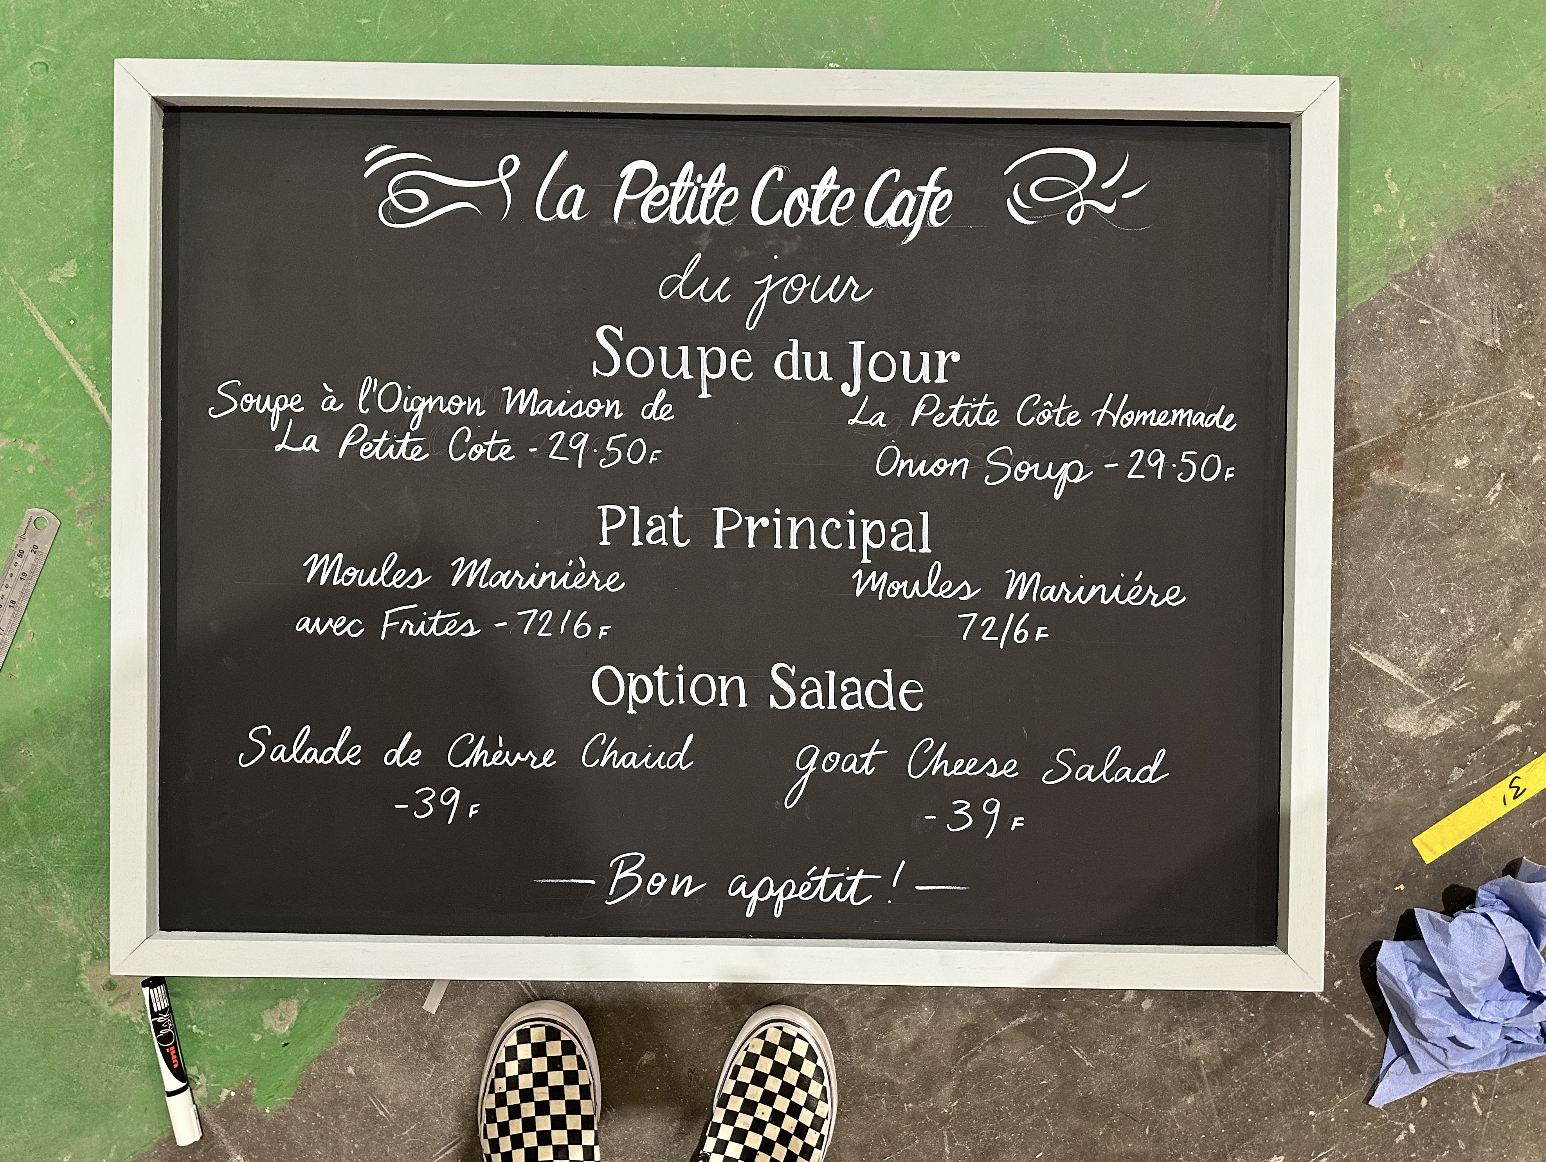 La Petite Cote Cafe
du jour
Soupe du Jour
Soupe à l'Oignon Maison de
La Petite Cote - 29.50F
La Petite Côte Homemade
Onion Soup - 29.50F
Plat Principal
Moules Marinière
avec Frites - 72/6F
Moules Mariniére
72/6F
Option Salade
Salade de Chèvre Chaud
- 39F
goat Cheese Salad
- 39F
— Bon appétit! —
uni Chalk
20
19
18
3'